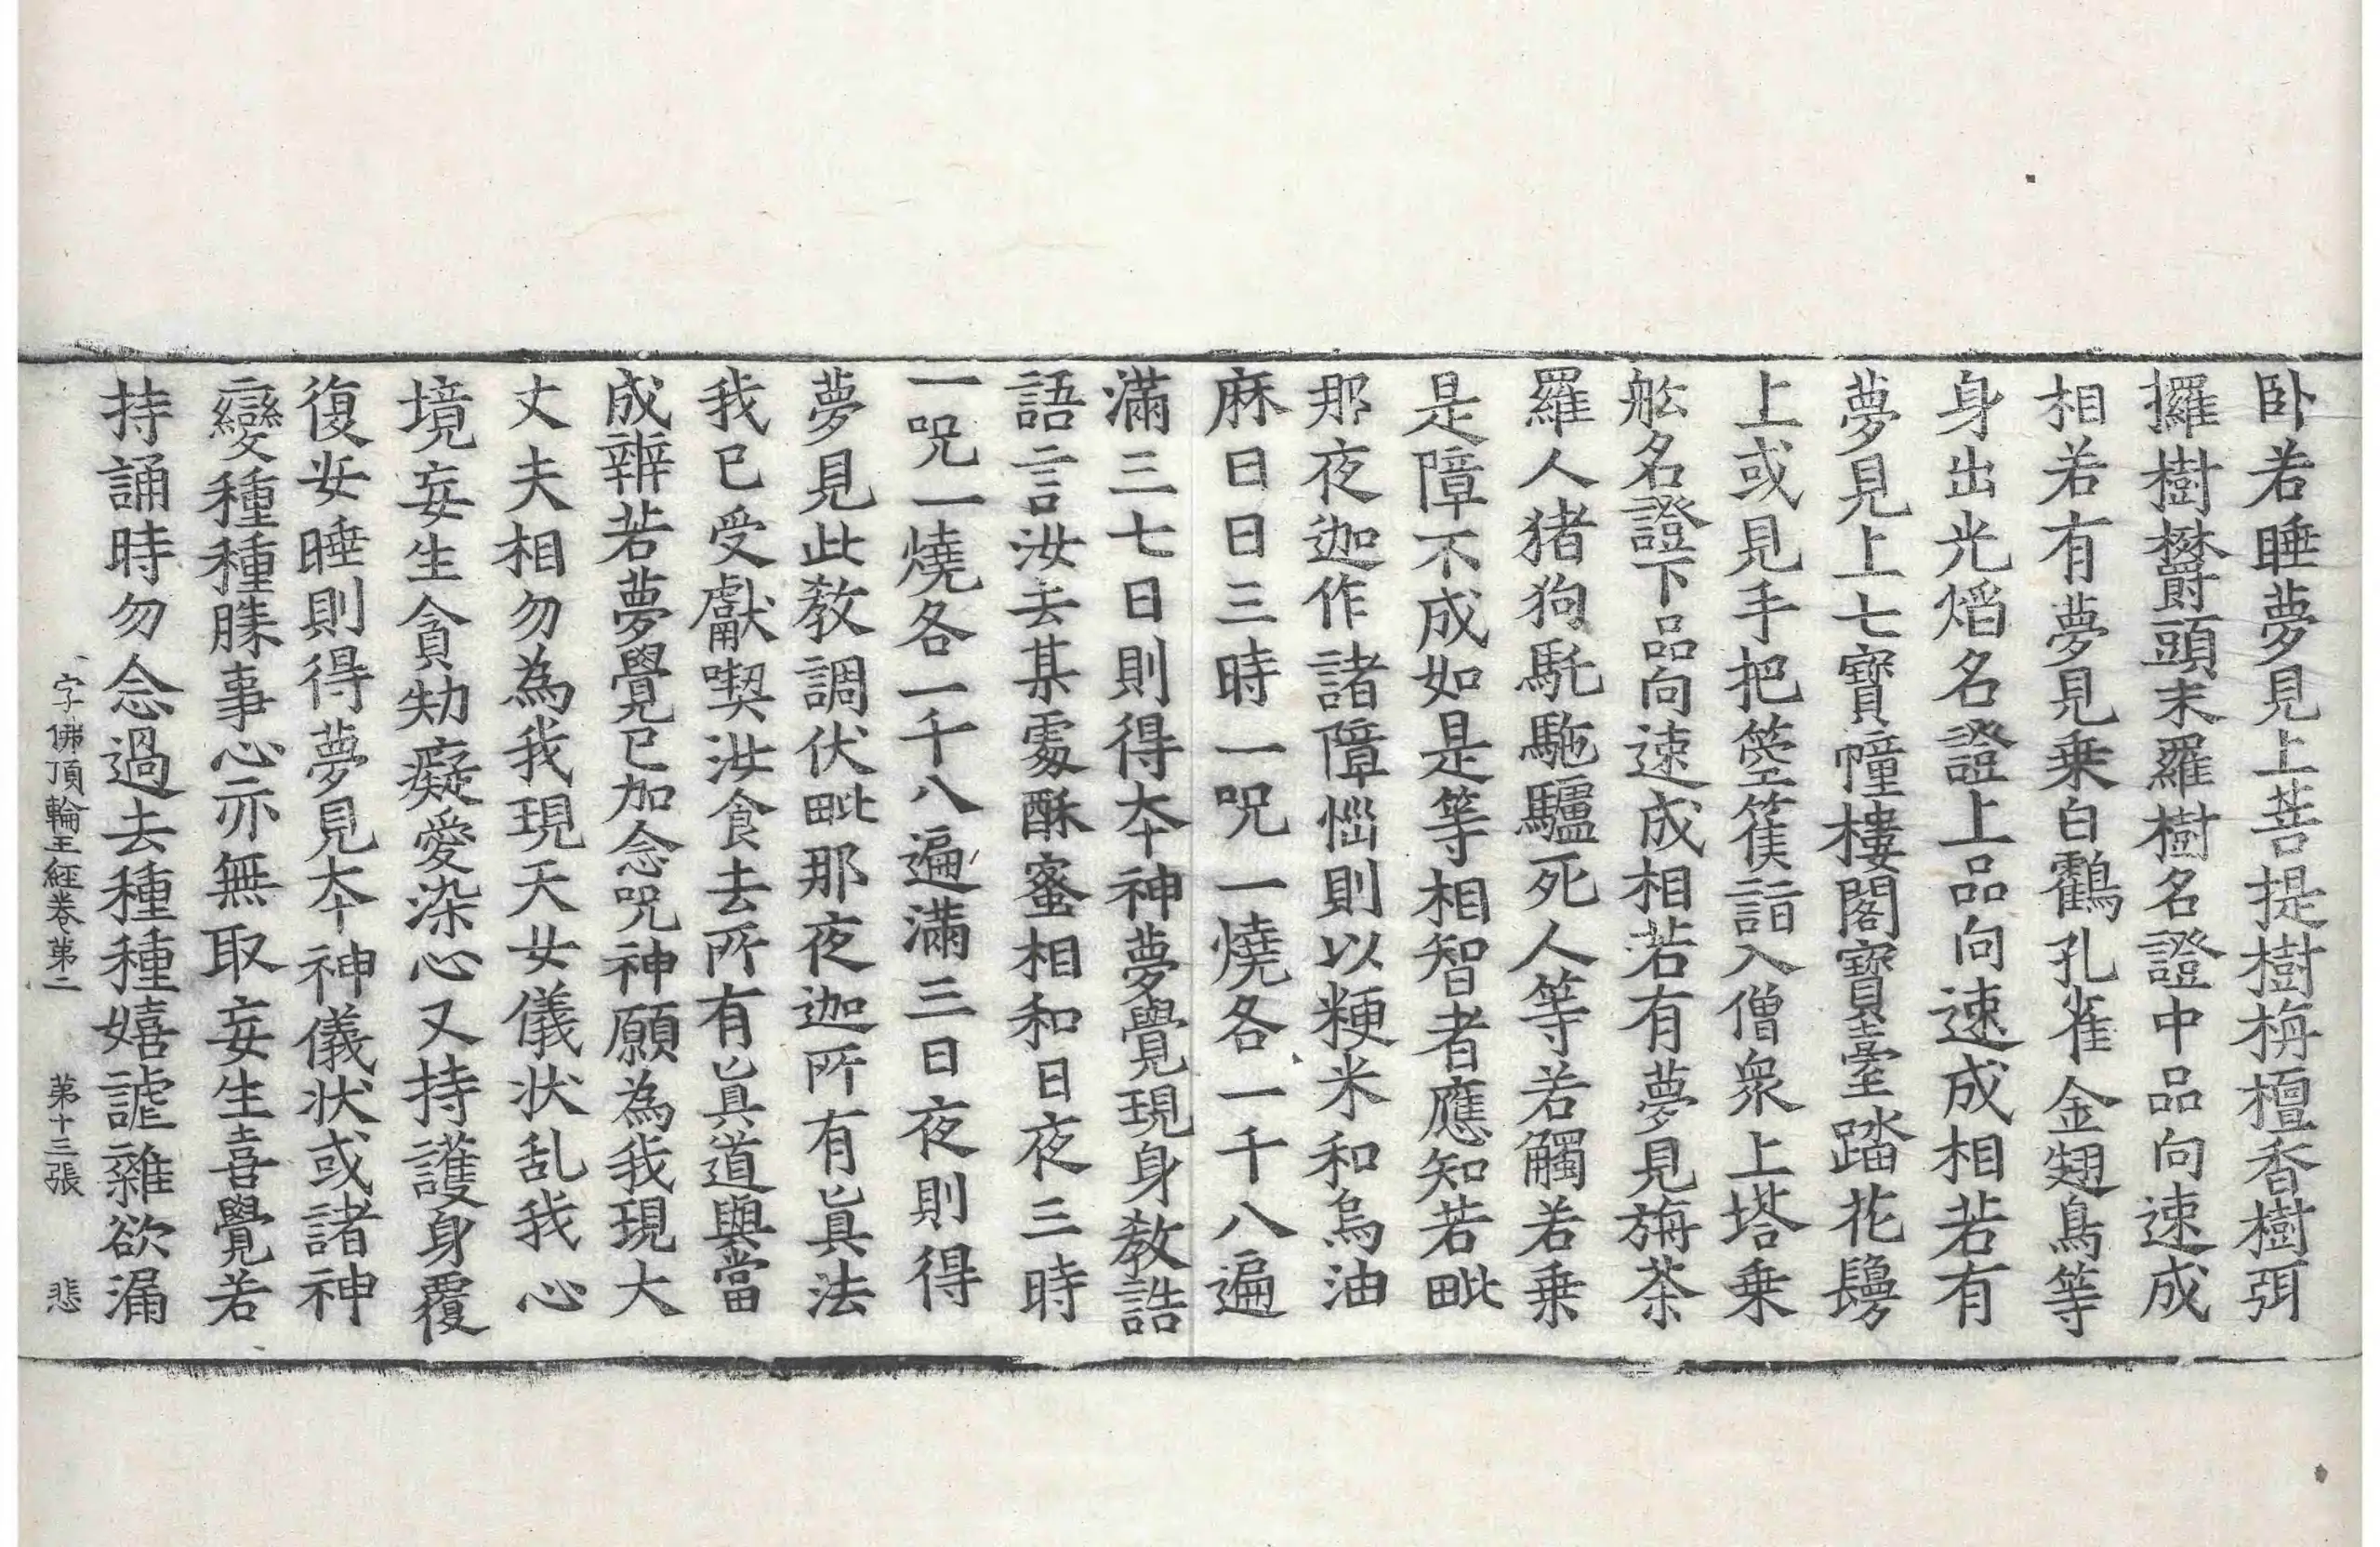 卧若睡夢見上菩提樹栴檀香樹弭
攞樹欝頭末羅樹名證中品向速成
相若有夢見乘白鸖孔雀金翅鳥等
身出光熖名證上品向速成相若有
夢見上七寶幢樓閣寶臺踏花鬘
上或見手把箜篌詣入僧衆上塔乘
舩名證下品向速成相若有夢見旃茶
羅人猪狗駞驢死人等若觸若乘
是障不成如是等相智者應知若毗
那夜迦作諸障惱則以粳米和烏油
麻日日三時一呪一燒各一千八遍
滿三七日則得本神夢覺現身教誥
語言汝去某處酥蜜相和日夜三時
一呪一燒各一千八遍滿三日夜則得
夢見此教調伏毗那夜迦所有眞法
我已受獻喫汝食去所有眞道與當
成辦若夢覺已加念呪神願為我現大
丈夫相勿為我現天女儀狀乱我心
境妄生貪劮癡愛染心又持護身覆
復安睡則得夢見本神儀狀或諸神
變種種勝事心亦無取妄生喜覺若
持誦時勿念過去種種嬉謔雜欲漏
字佛頂輪王經卷第二　第十三張　悲